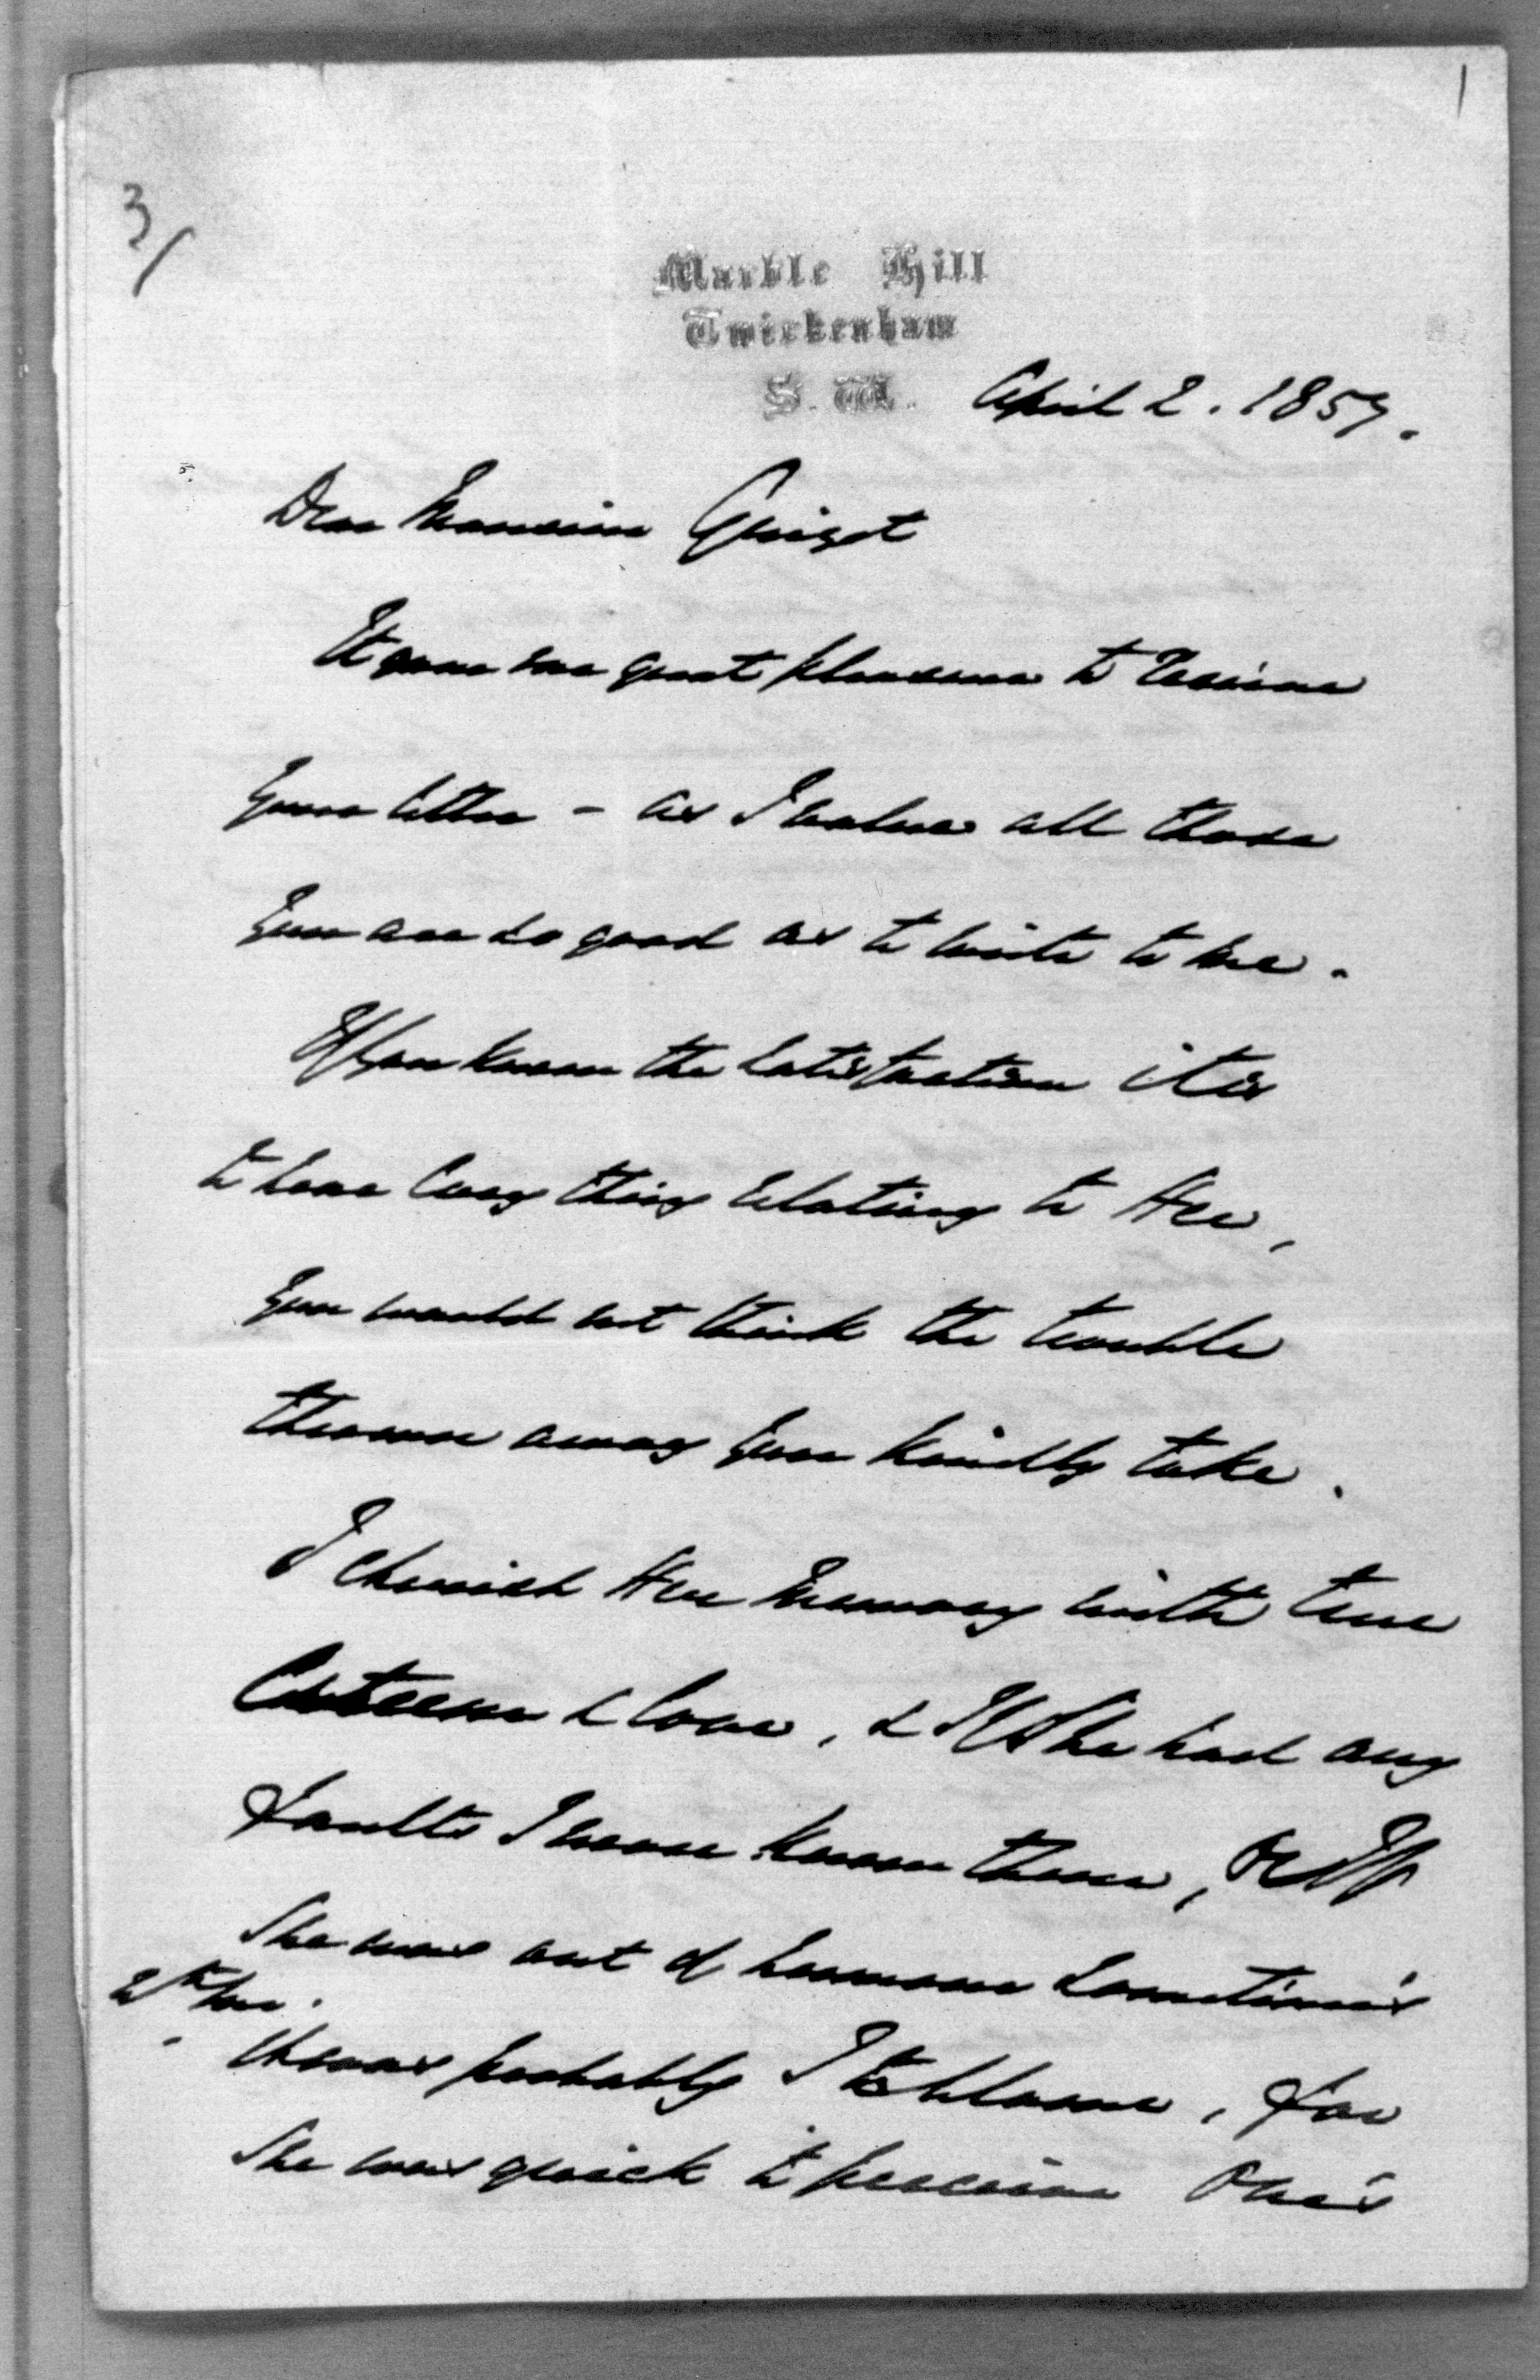 1
3/
Marble Hill
Twickenham
S. W. April 2. 1857.
Dear Monsieur Guizot
It gave me great pleasure to receive
your letter - as I value all those
you are so good as to write to me.
If you knew the satisfaction it is
to hear every thing relating to Her,
you would not think the trouble
thrown away you kindly take.
I cherish Her memory with true
Esteem & love, & If She had any
faults I never knew them, or If
She was out of humour sometimes
wth me.
t'was probably I to blame, for
She was quick to perceive One's